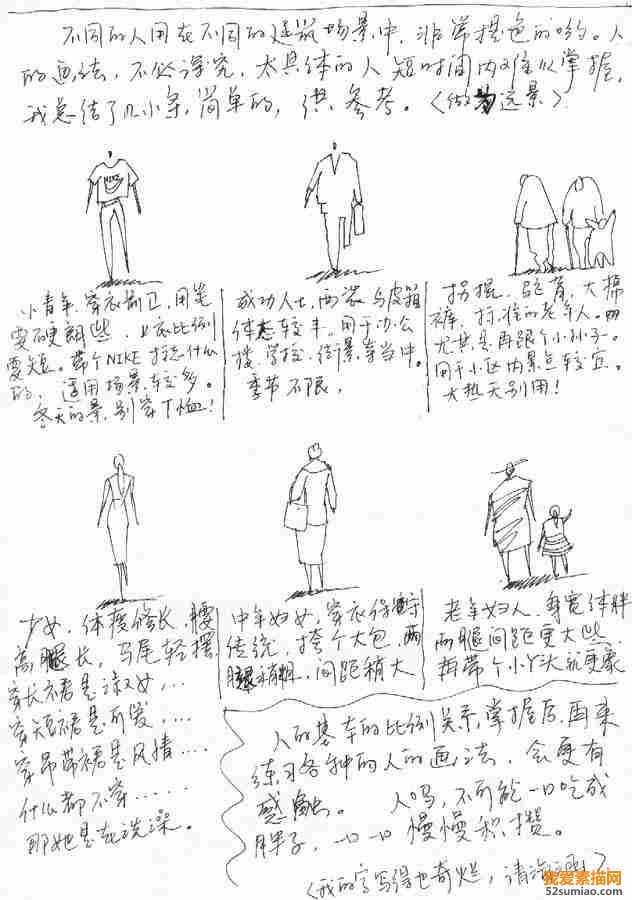 不同的人用在不同的建筑场景中,非常提色的哟。人
的画法,不必深究,太具体的人短时间内难以掌握,
我总结了几小条,简单的,供参考。〈做为远景〉
NIKE
小青年,穿衣前卫,用笔
要硬朗些,上衣比例
要短。带个NIKE标志什么
的,适用场景较多。
冬天的景,别穿T恤!
成功人士,西装与皮箱
体态较丰。用于办公
楼,学校,街景等当中。
季节不限。
拐棍,驼背,大棉
裤,标准的老年人。
尤其是再跟个小孙子。
用于小区内景点较宜。
大热天别用!
少女,体瘦修长,腰
高腿长,马尾轻摆
穿长裙是淑女,...
穿短裙是可爱,....
穿吊带裙是风情....
什么都不穿......
那她是在洗澡。
中年妇女,穿衣保守
传统,挎个大包,两
腿稍粗,间距稍大
老年妇人,身宽体胖
两腿间距更大些.
再带个小丫头就更象
人的基本的比例关系,掌握后,再来
练习各种的人的画法,会更有
感触。 人吗,不可能一口吃成
胖子,一口一口慢慢积攒。
〈我的字写得也奇烂,请海涵〉
我爱素描网
52sumiao.com